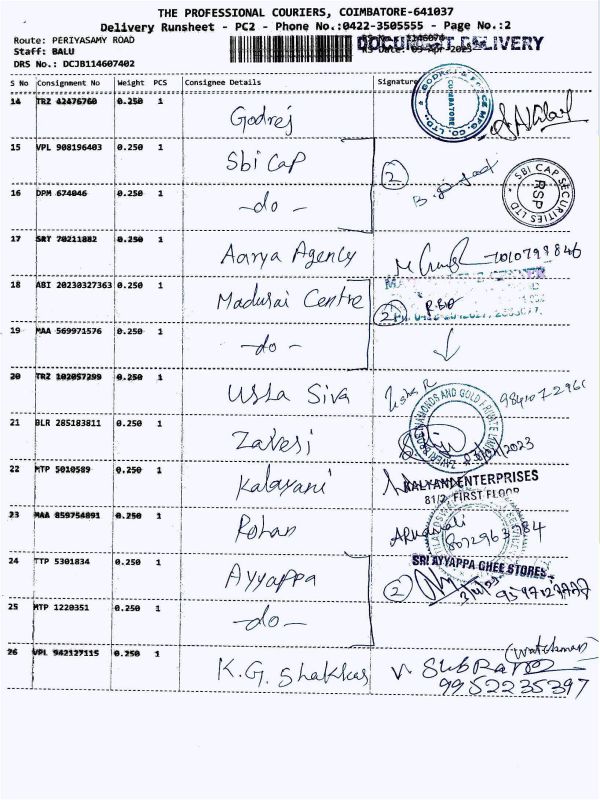 THE PROFESSIONAL COURIERS, COIMBATORE-641037
Delivery Runsheet - PC2 - Phone No.:0422-3505555 - Page No.:2
Route: PERIYASAMY ROAD
DOCUMENT DELIVERY
Staff: BALU
Date: 03 Apr 2023
DRS No.: DCJB114607402
S No Consignment No Weight PCS Consignee Details Signature
14 TRZ 42476760 0.250 1 Godrej
COIMBATORE
15 VPL 908196403 0.250 1 Sbi Cap 2
SBI CAP SECURITIES LTD
RSP
16 DPM 674046 0.250 1 -do-
17 SRY 70211882 0.250 1 Aarya Agency 7010798846
18 ABI 20230327363 0.250 1 Madurai Centre 2
19 MAA 569971576 0.250 1 -do-
20 TRZ 102057299 0.250 1 Usha Siva Usha R
21 BLR 285183811 0.250 1 Zaveri
22 MTP 5010589 0.250 1 Kalayani
KALYANI ENTERPRISES
81/2, FIRST FLOOR
23 MAA 859754891 0.250 1 Rohan
24 TTP 5301834 0.250 1 Ayyappa 2
SRI AYYAPPA GHEE STORES
25 MTP 1220351 0.250 1 -do-
26 VPL 942127115 0.250 1 K.G. Shakkas
(Watchman)
9952235397